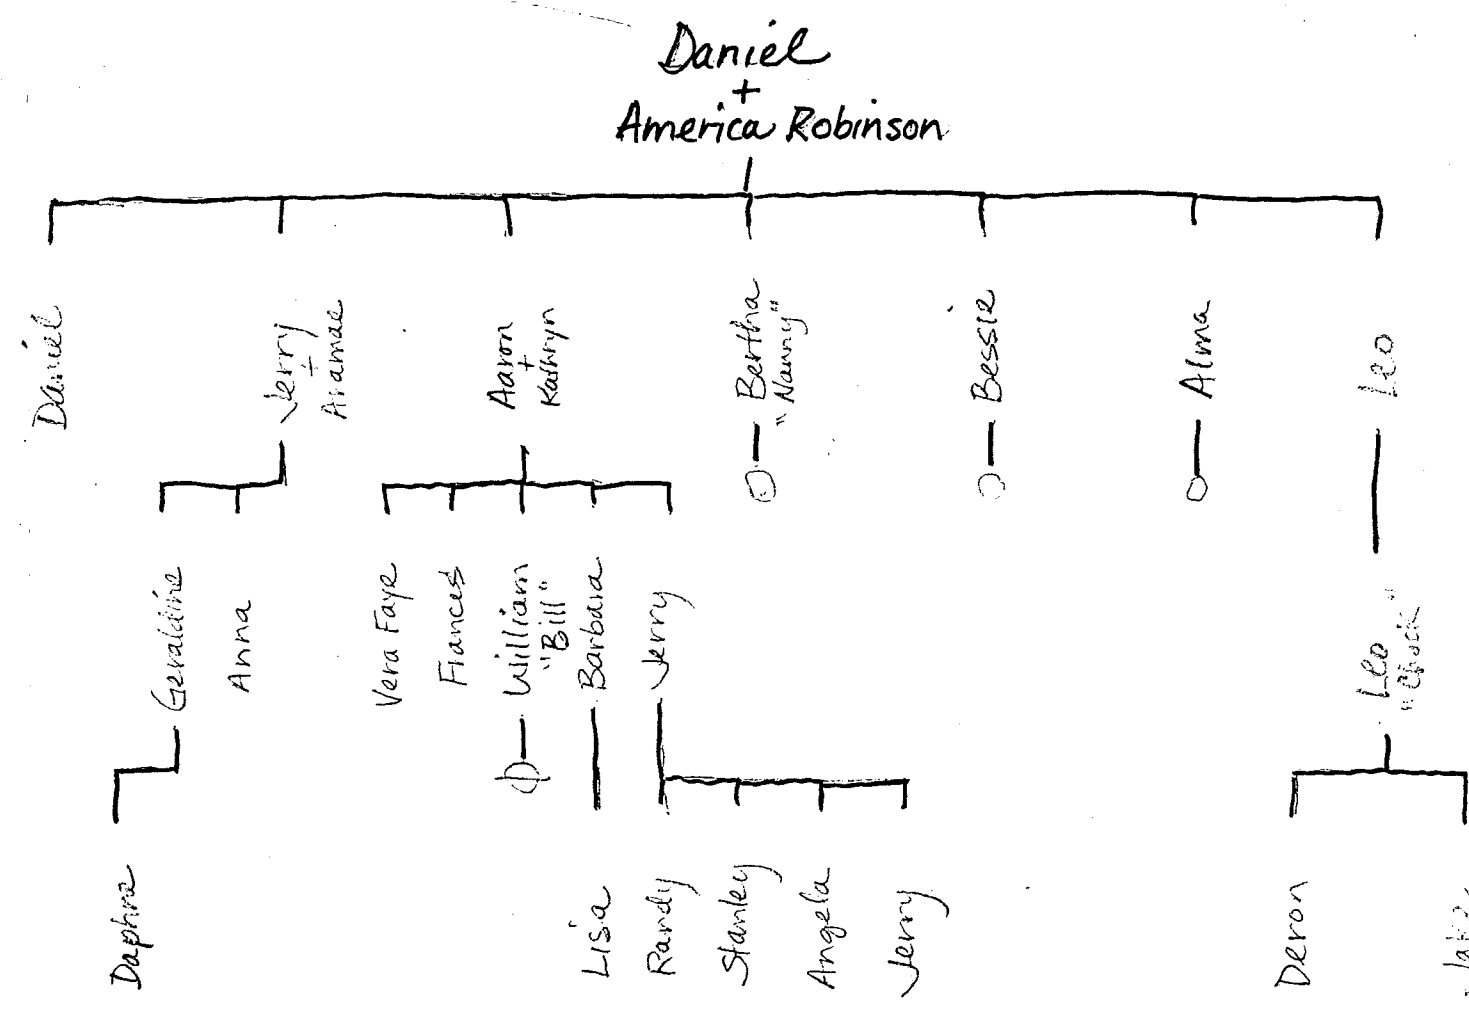 Daniel
+
America Robinson
Daniel
Jerry
+
Aramae
Aaron
+
Kathryn
Bertha
"Nanny"
Bessie
Alma
Leo
Geraldine
Anna
Vera Faye
Frances
William
"Bill"
Barbara
Jerry
Leo
"Chuck"
Daphne
Lisa
Randy
Stanley
Angela
Jerry
Deron